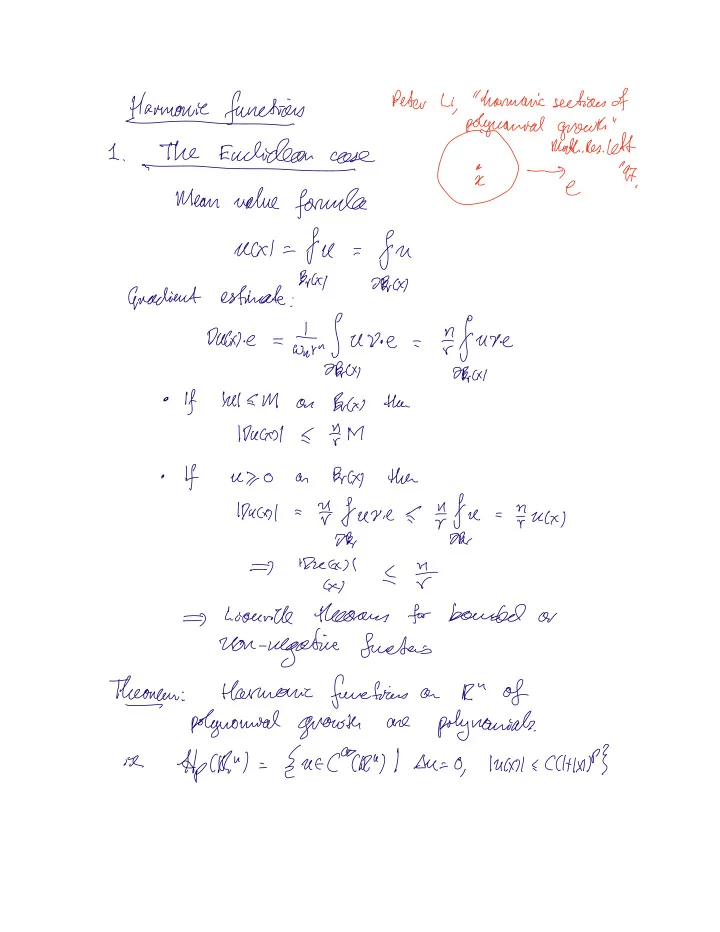 Harmonic functions
Peter Li, "harmonic sections of
polynomial growth"
Math. Res. Lett
'97.
1. The Euclidean case
x → e
Mean value formula
u(x) = ⨍_{B_r(x)} u = ⨍_{∂B_r(x)} u
Gradient estimate:
Du(x)·e = 1/(ω_n r^n) ∫_{∂B_r(x)} u ν·e = n/r ⨍_{∂B_r(x)} u ν·e
• If |u| ≤ M on B_r(x) then
|Du(x)| ≤ n/r M
• If u ≥ 0 on B_r(x) then
|Du(x)| = n/r ⨍_{∂B_r} u ν·e ≤ n/r ⨍_{∂B_r} u = n/r u(x)
⇒ |Du(x)| / u(x) ≤ n/r
⇒ Liouville theorems for bounded or
non-negative functions
Theorem: Harmonic functions on ℝⁿ of
polynomial growth are polynomials.
ie H_p(ℝⁿ) = {u ∈ C^∞(ℝⁿ) | Δu = 0, |u(x)| ≤ C(1+|x|)^p}